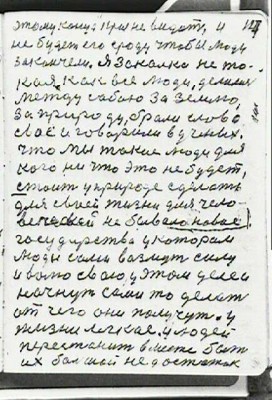 этому концу. При не видать, и
не будет его сроду чтобы люди
закончели. Я закалка не то-
кая, как все люди, делили
между собою за землю,
за природу, брали слово
своё и говорили в ученых.
что мы такие люди для
кого ни что это не будет,
стоит у природе сделать
для своей жизни для чело-
веческой не бывало новое
государства у котором
люди сами возмут силу
и волю свою, у этом деле
начнут сами то делать
от чего они получут. у
жизни легкае, и людей
перестанит вместе быть
их большой недостаток